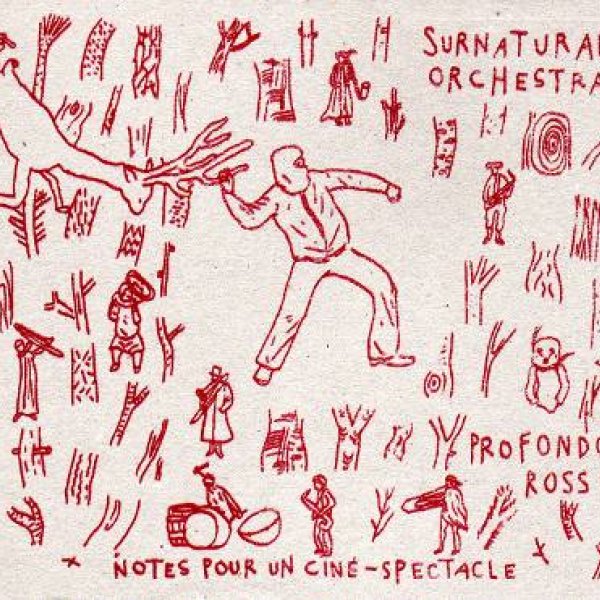 SURNATURAL
ORCHESTRA
PROFONDO
ROSS
NOTES POUR UN CINÉ-SPECTACLE